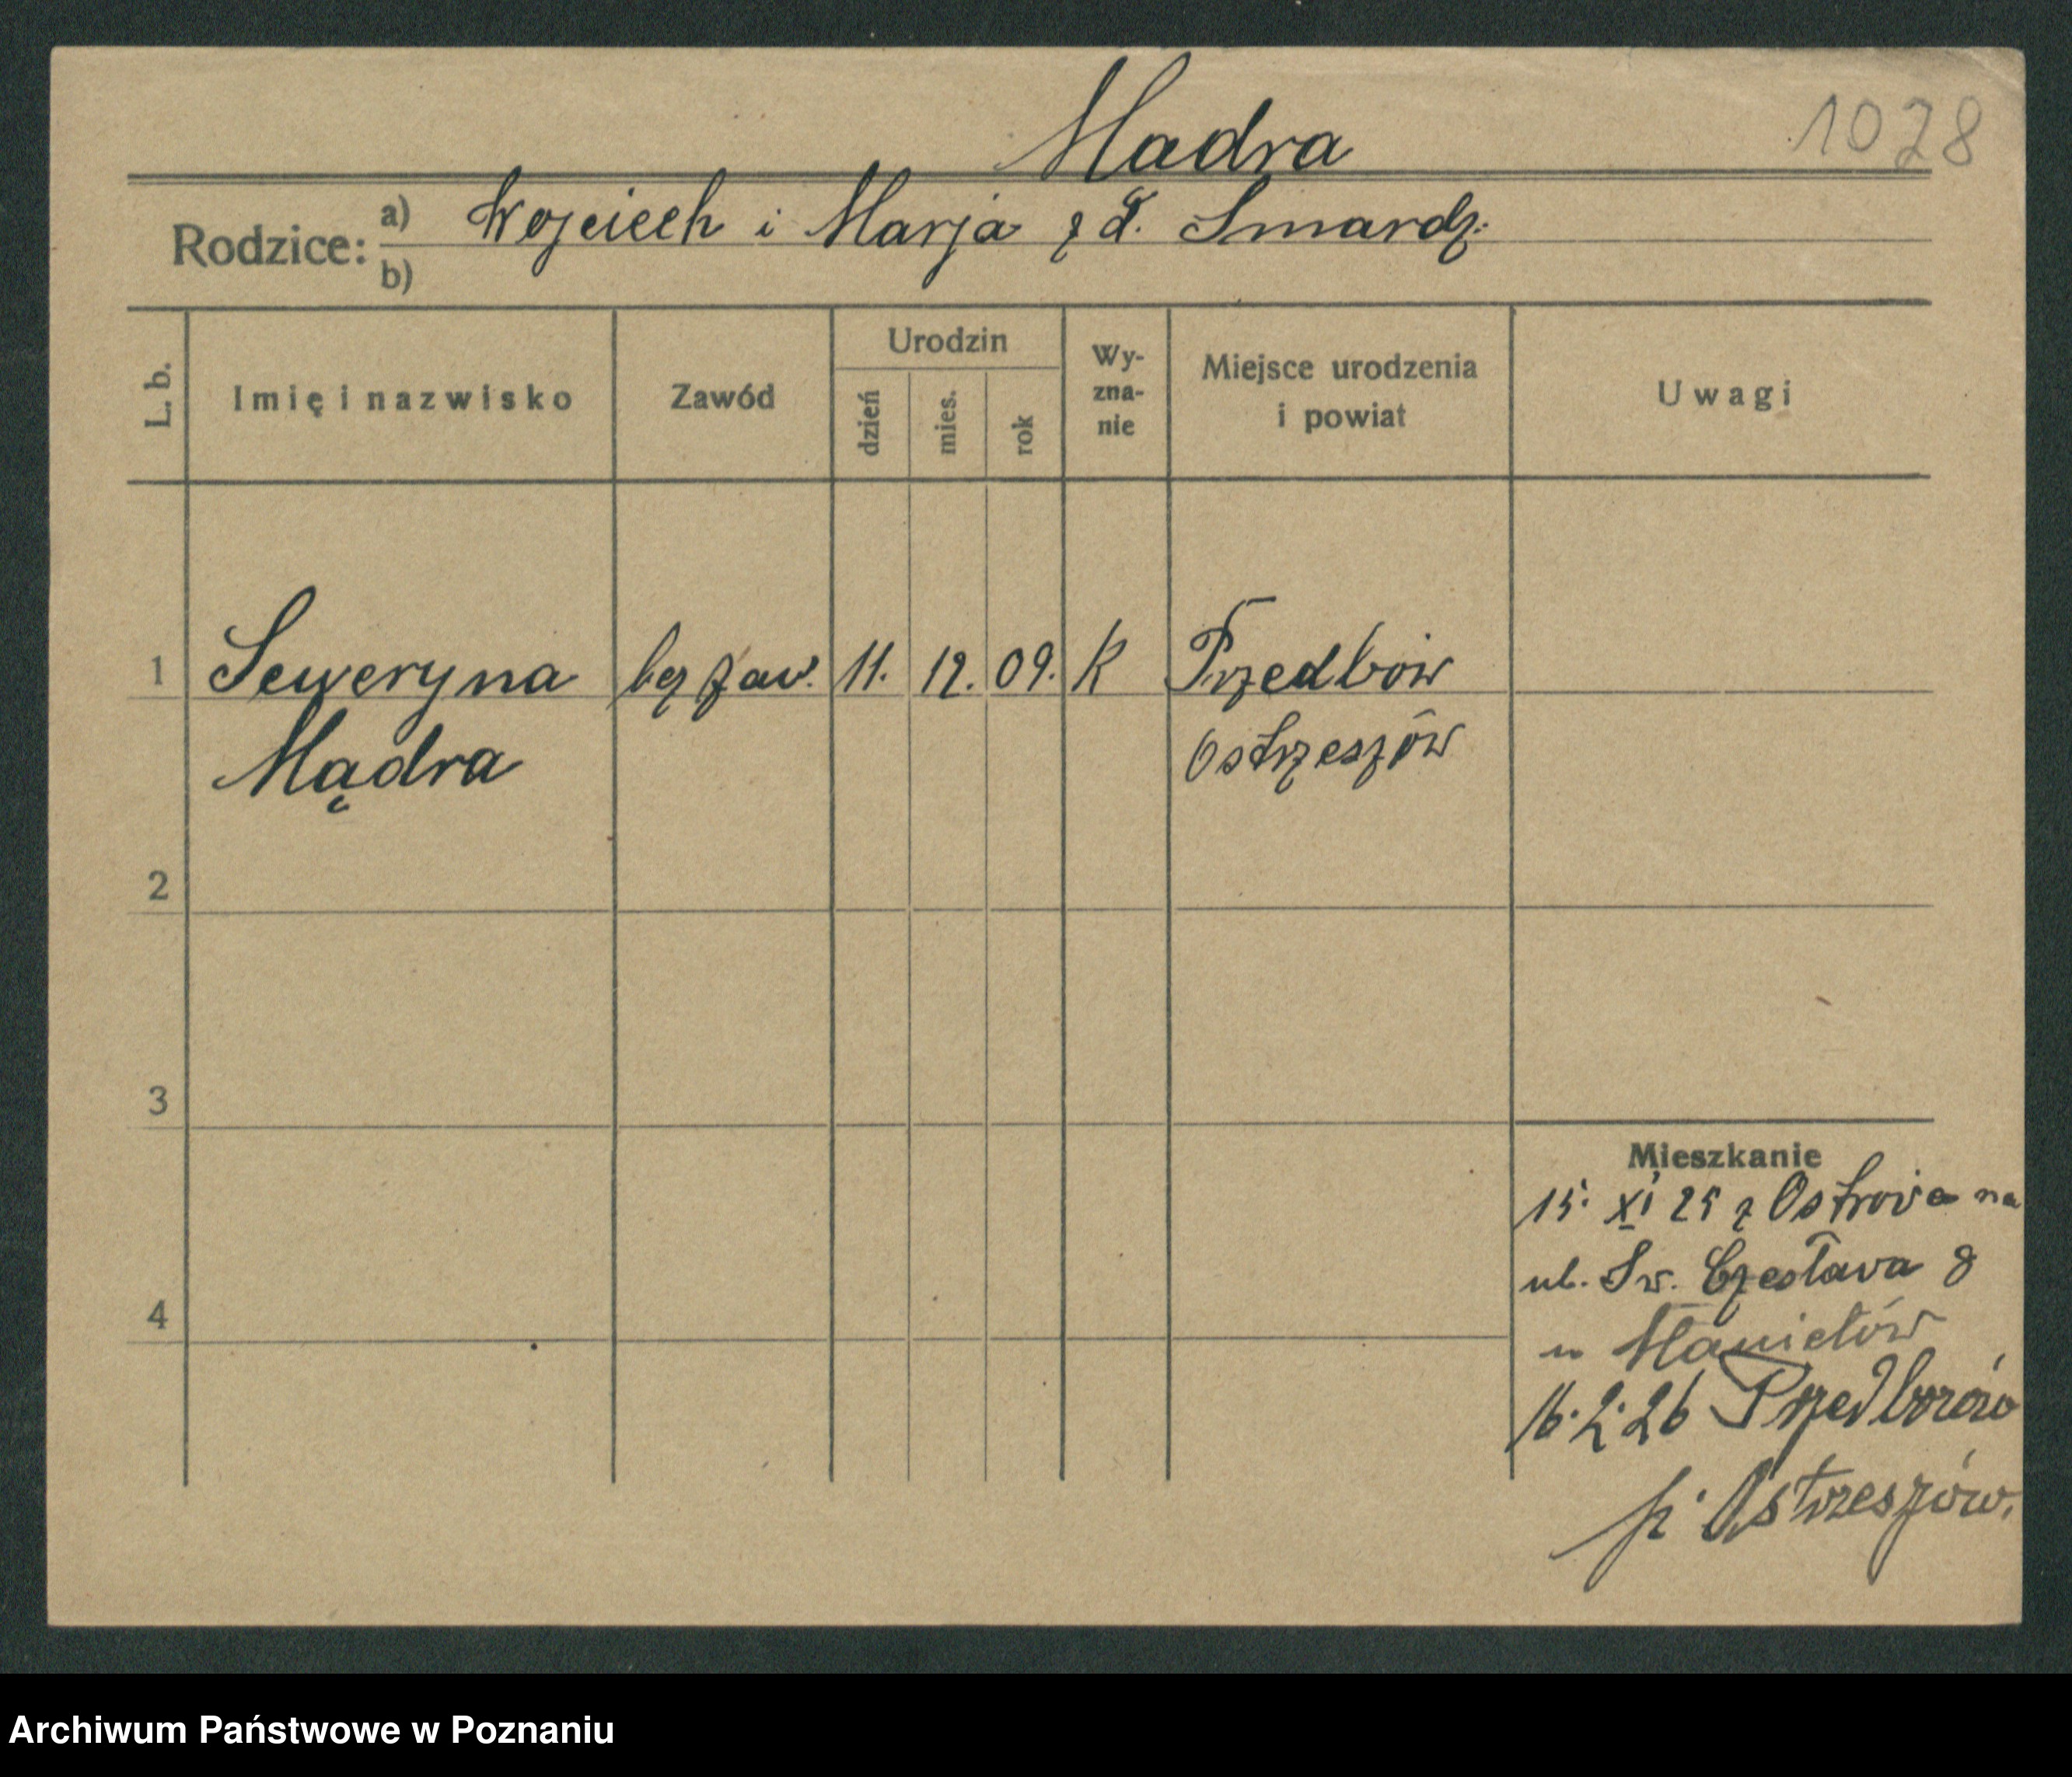 Madra
1078
Rodzice: a) Wojciech i Marja z d. Smardz.
b)
L. b. Imię i nazwisko Zawód Urodzin dzień mies. rok Wyznanie Miejsce urodzenia i powiat Uwagi
1 Seweryna bez zaw. 11. 12. 09. K Przedbów
Mądra Ostrzeszów
2
3
4
Mieszkanie
15. XI 25 z Ostrowa na
ul. Św. Czesława 8
u
16.2.26 Przedborów
p. Ostrzeszów.
Archiwum Państwowe w Poznaniu